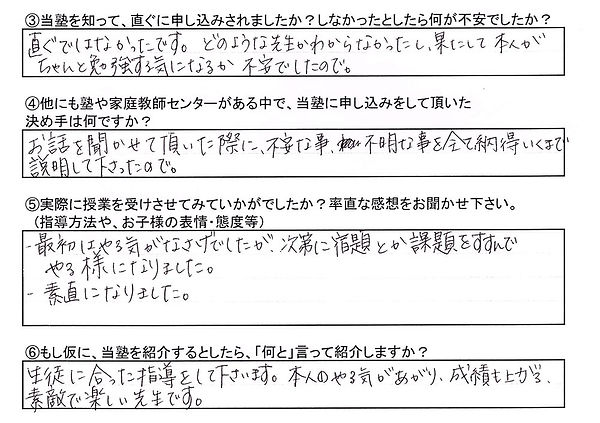 ③当塾を知って、直ぐに申し込みされましたか？しなかったとしたら何が不安でしたか？
直ぐではなかったです。どのような先生かわからなかったし、果して本人が
ちゃんと勉強する気になるか 不安でしたので。
④他にも塾や家庭教師センターがある中で、当塾に申し込みをして頂いた
決め手は何ですか？
お話を聞かせて頂いた際に、不安な事、不明な事を全て納得いくまで
説明して下さったので。
⑤実際に授業を受けさせてみていかがでしたか？率直な感想をお聞かせ下さい。
（指導方法や、お子様の表情・態度等）
・最初はやる気がなさげでしたが、次第に宿題とか課題をすすんで
やる様になりました。
・素直になりました。
⑥もし仮に、当塾を紹介するとしたら、「何と」言って紹介しますか？
生徒に合った指導をして下さいます。本人のやる気があがり、成績も上がる、
素敵で楽しい先生です。